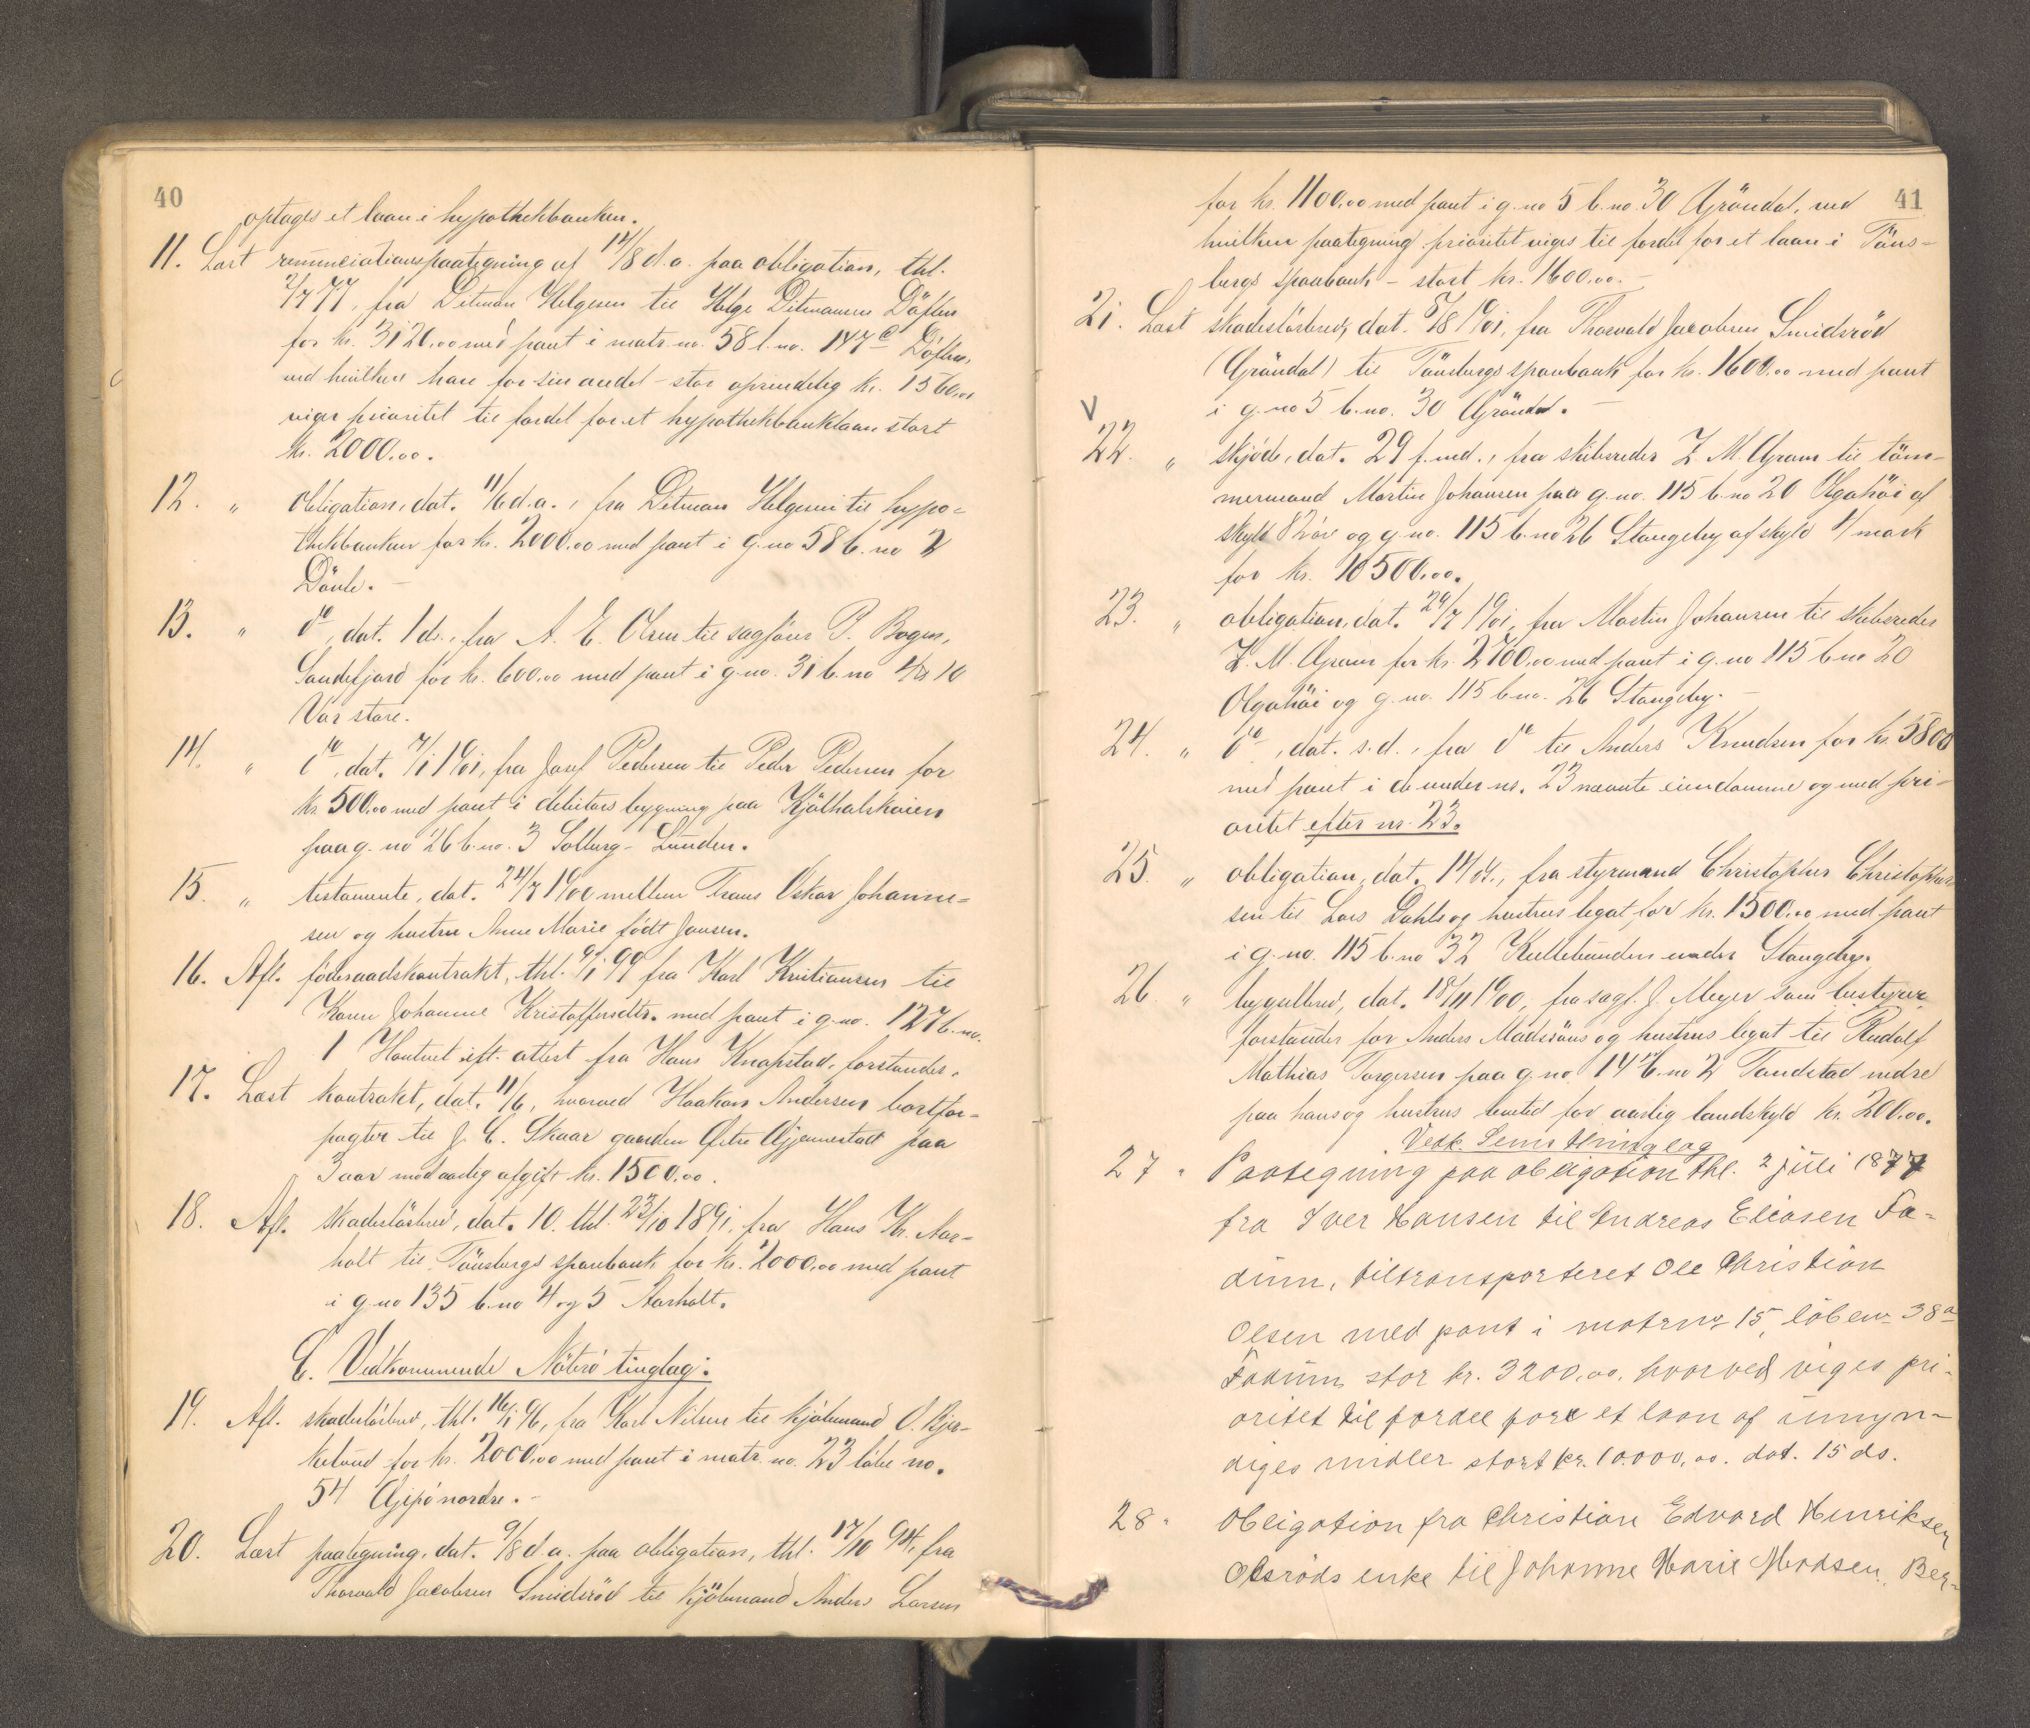 40
optages et laan i hypothekbanken.
11. Læst renunciationspaategning af 14/8 d.a. paa obligation, thl.
2/7 77, fra Ditman Helgesen til Helge Ditmansen
for kr. 3120,00 med pant i matr. no. 58 l. no. 147c
ved hvilken han for sin andel - stor oprindelig kr. 1560,00
viger prioritet til fordel for et hypothekbanklaan stort
kr. 2000,00.
12. " obligation, dat. 11/6 d.a., fra Ditman Helgesen til hypo-
thekbanken for kr. 2000,00 med pant i g. no 58 b. no 2
13. " do, dat. 1 ds., fra A. E. Olsen til sagfører P. Bogen,
Sandefjord for kr. 600,00 med pant i g. no. 31 b. no
Var store.
14. " do, dat. 7/1 1901, fra Josef Pedersen til Peder Pedersen for
kr. 500,00 med pant i debitors bygning paa
paa g. no 26 b. no. 3 Solberg - Lunden.
15. " testamente, dat. 24/7 1900 mellem Frans Oskar Johanne-
sen og hustru Anne Marie født Jansen.
16. Afl. föderaadskontrakt, thl. 9/1 99 fra Karl Kristiansen til
Karen Johanne Kristoffersdtr. med pant i g. no. 127 b. no.
1 eft. attest fra Hans Knapstad, forstander.
17. Læst kontrakt, dat. 11/6, hvorved Haakon Andersen bortfor-
pagter til J. C. Skaar gaarden Öfre Gjennestad paa
3 aar mod aarlig afgift kr. 1500,00.
18. Afl. skadeslösbrev, dat. 10. thl. 23/10 1891, fra Hans Kr. Aar-
holt til Tönsbergs sparebank for kr. 2000,00 med pant
i g. no 135 b. no 4 og 5 Aarholt.
C. Vedkommende Nöterö tinglag:
19. Afl. skadeslösbrev, thl. 16/1 96, fra Karl Nilsen til kjöbmand O. Bjer-
kelund for kr. 2000,00 med pant i matr. no. 23 löbe no.
54 Gipö nordre. -
20. Læst paategning, dat. 9/8 d.a. paa obligation, thl. 17/10 94, fra
Thorvald Jacobsen Smidsröd til kjöbmand Anders Larsen
41
for kr. 1100,00 med pant i g. no 5 b. no. 30 Gröndal, ved
hvilken paategning prioritet viges til fordel for et laan i Töns-
bergs sparebank - stort kr. 1600,00. -
21. Læst skadeslösbrev, dat. 5/8 1901, fra Thorvald Jacobsen Smidsröd
(Gröndal) til Tönsbergs sparebank for kr. 1600,00 med pant
i g. no 5 b. no. 30 Gröndal. -
v
22. " skjöde, dat. 29 f. md., fra skibsreder Z. M. Gram til töm-
mermand Martin Johansen paa g. no. 115 b. no 20 Olgahöi af
skyld 82 öre og g. no. 115 b. no 26 Stangeby af skyld mark
for kr. 10500,00.
23. " obligation, dat. 29/7 1901, fra Martin Johansen til skibsreder
Z. M. Gram for kr. 2700,00 med pant i g. no 115 b. no 20
Olgahöi og g. no. 115 b. no. 26 Stangeby. -
24. " do, dat. s.d., fra do til Anders Knudsen for kr. 5800
med pant i de under nr. 23 nævnte eiendomme og med pri-
oritet efter nr. 23.
25. " obligation, dat. fra styrmand Christopher Christopher-
sen til Lars Dahls og hustrus legat for kr. 1500,00 med pant
i g. no. 115 b. no 32 under Stangeby.
26. " bygselbrev, dat. 18/11 1900, fra sagf. J. Meyer som bestyrer
forstander for Anders og hustrus legat til Rudolf
Mathias Torgersen paa g. no. b. no 2 Tandstad nedre
paa hans og hustrus levetid for aarlig landskyld kr. 200,00.
Vedk. Sems thinglag
27 " Paategning paa obligation thl. 2 juli 1877
fra Iver Hansen til Andreas Eliasen Fa-
dum, tiltransporteret Ole Christian
Olsen med pant i matrnr 15, löbenr 38a
Fadum stor kr. 3200,00, hvorved viges pri-
oritet til fordel for et laan af umyn-
diges midler stort kr. 10.000,00. dat. 15 ds.
28 " Obligation fra Christian Edvard Henriksen
Olsröds enke til Johanne Marie Madsen, Ber-